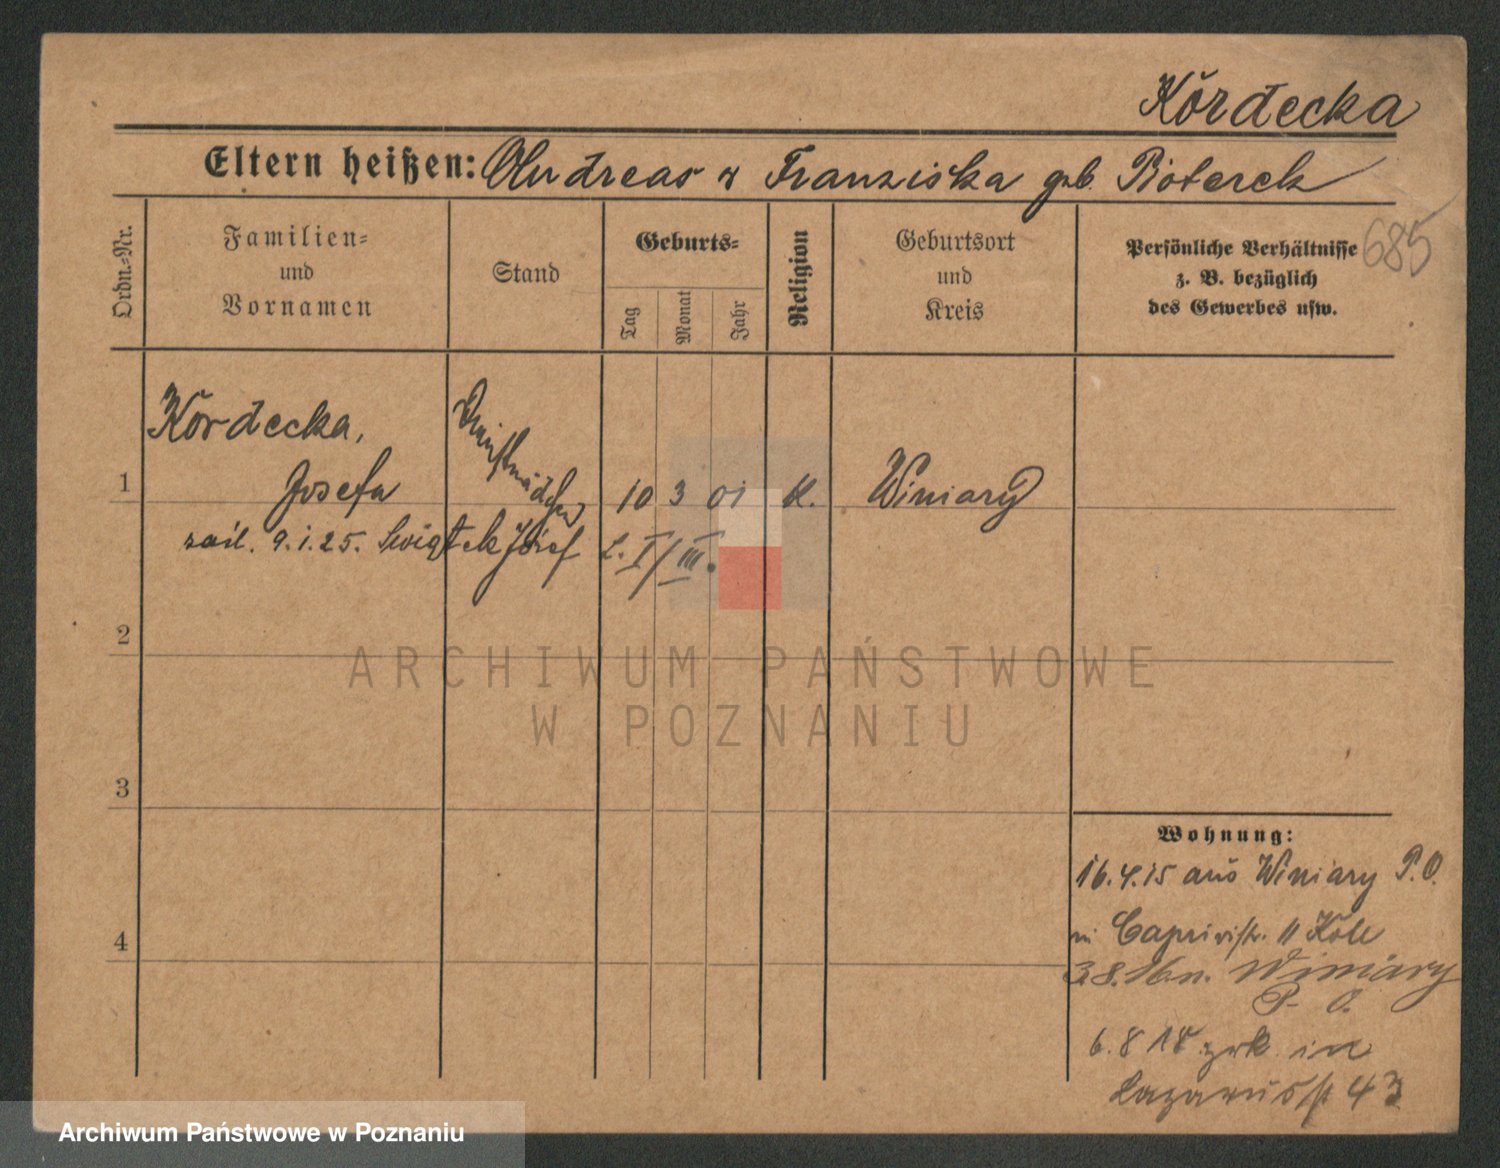 Kordecka
Eltern heißen: Andreas u Franziska geb. Pioterek
Ordn.-Nr.
Familien-
und
Vornamen
Stand
Geburts-
Tag
Monat
Jahr
Religion
Geburtsort
und
Kreis
Persönliche Verhältnisse
z. B. bezüglich
des Gewerbes usw.
685
Kordecka,
Dienstmädchen
1 Josefa 10 3 01 K. Winiary
9.1.25. Świątek Józef L. I/III.
2
3
4
Wohnung:
16.4.15 aus Winiary P.O.
in Caprivistr. 11
3.8.16 n. Winiary
P. O.
6.8 18 zrk in
Lazarusstr 43
ARCHIWUM PAŃSTWOWE
W POZNANIU
Archiwum Państwowe w Poznaniu